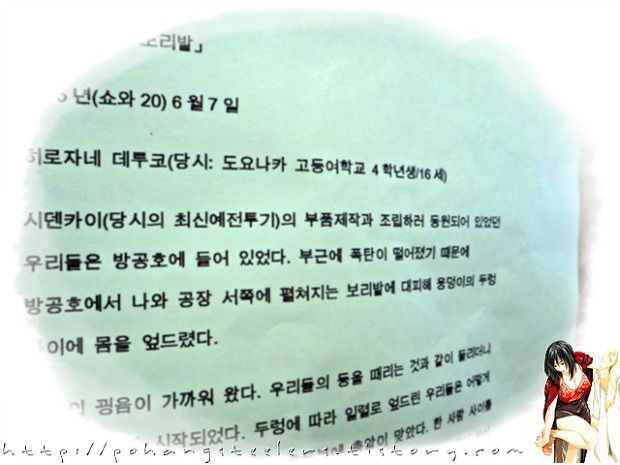 보리밭」
년(쇼와 20) 6월 7일
히로자네 데투코(당시: 도요나카 고등여학교 4학년생/16세)
시덴카이(당시의 최신예전투기)의 부품제작과 조립하러 동원되어 있었던
우리들은 방공호에 들어 있었다. 부근에 폭탄이 떨어졌기 때문에
방공호에서 나와 공장 서쪽에 펼쳐지는 보리밭에 대피해 웅덩이의 두렁
에 몸을 엎드렸다.
굉음이 가까워 왔다. 우리들의 등을 때리는 것과 같이 울리더니
시작되었다. 두렁에 따라 일렬로 엎드린 우리들은 어떻게
총알이 맞았다. 한 사람 사이를
http://pohangsteelers.tistory.com